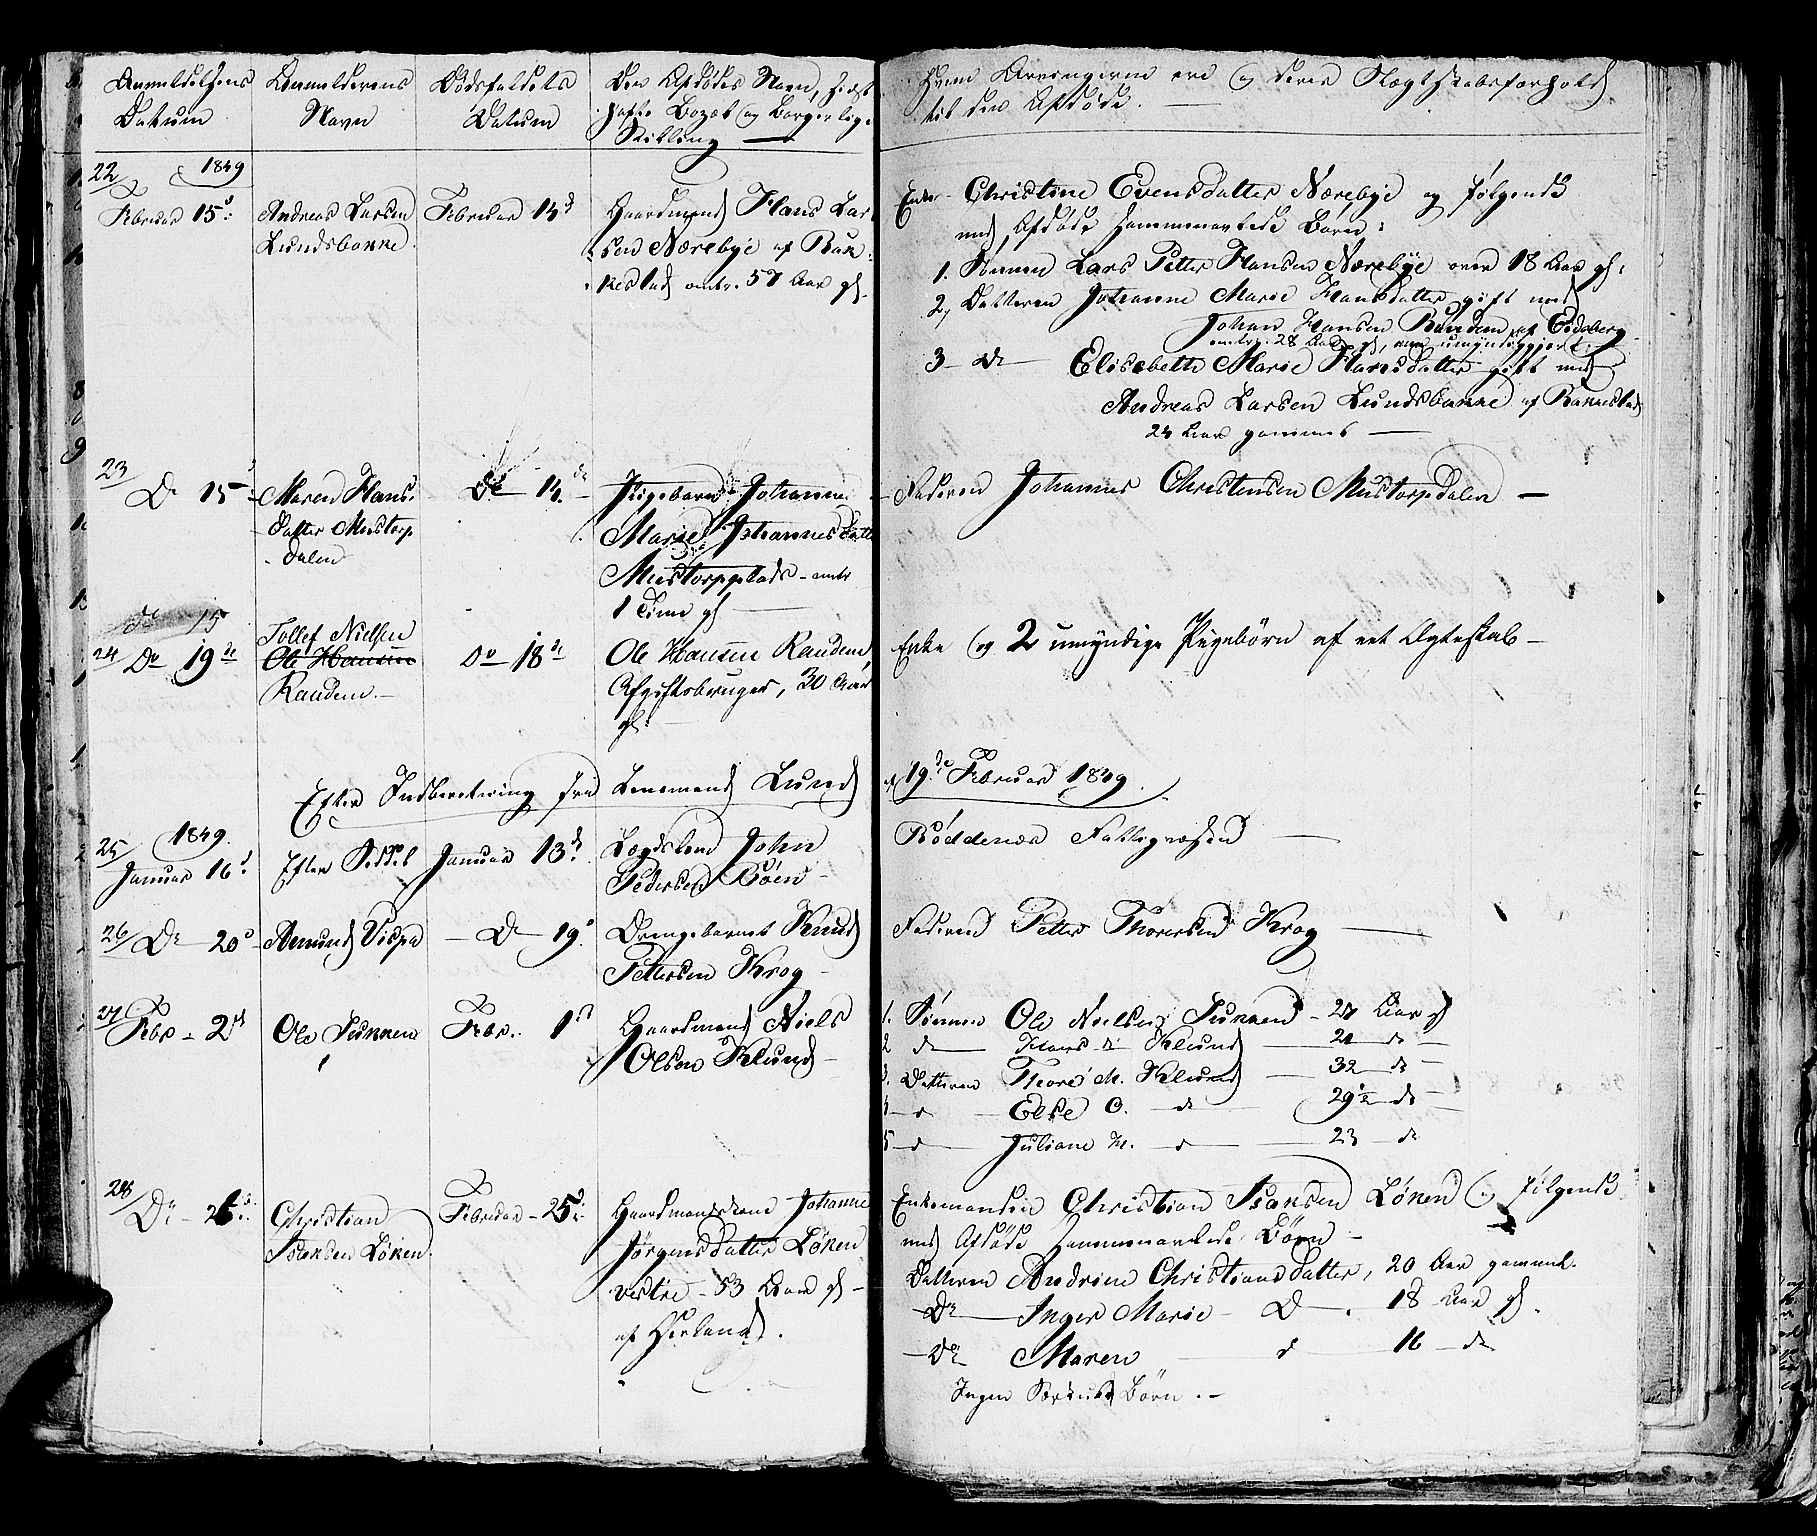 Anmeldelsens Datum
Anmelderens Navn
Dødsfaldets Datum
Den Afdødes Navn, sidst
hafte Bopæl og Borgerlige
Stilling —
Hvem Arvingerne ere og deres Slægtskabsforhold
til den Afdøde. —
22/ 1849
Februar 15d:
Andreas Larsen
Lundsbakke
Februar 14d
Gaardmand Hans Lar
sen Nærebye af Rak
kestad omtr. 57 Aar gl.
Enken Christine Evensdatter Nærebye og følgende
med Afdøde sammenavlede Børn:
1. Sønnen Lars Petter Hansen Nærebye over 18 Aar gl:
2, Datteren Johanne Marie Hansdatter gift med
Johan Hansen Raudem af Eidsberg
omtr. 28 Aar gl, umyndiggjort.
3 — Do — Elisebeth Marie Hansdatter gift med
Andreas Larsen Lundsbakke af Rakkestad
24 Aar gammel —
23/ Do 15d
Maren Hans
datter Mustorp
dalen
Do 14de
Pigebarn Johanne
Marie Johannesdatt
Mustorpplads - omtr
1 Time gl —
Faderen Johannes Christensen Mustorpdalen —
do 15
24/ Do 19de
Tollef Nielsen
Ole Hansen
Raudem. —
Do 18de
Ole Hansen Raudem,
Afgiftsbruger, 30 Aar
gl. —
Enke og 2 umyndige Pigebørn af eet Ægteskab —
Efter Indberetning fra Lensmand Lund
d/ 19de Februar 1849.
25/ 1849.
Januar 16d
Efter Seddel
Januar 13d.
Lægdslem John
Pedersen Böen —
Röddenæs Fattigvæsen —
26/ Do 20d
Amund Vispa
— Do — 19d.
Drengebarnet Knud
Pettersen Krog —
Faderen Petter Thoresen Krog —
27/ Febr - 2d
Ole Sukken
Febr. 1st
Gaardmand Niels
Olsen Klund —
1. Sønnen Ole Nielsen Sukken — 24 Aar gl
2 do — Hans do Klund — 21 — do —
3. Datteren Thore M. Klund — 32 — do
4 — d — Else O. — do — 29½ do —
5 — d — Juliane M. — d — 23 — do
28/ Do - 26d:
Christian
Isaksen Löken.
Februar - 25d:
Gaardmandskone Johanne
Jørgensdatter Löken
vestre - 53 Aar gl —
af Herland.
Enkemanden Christian Isaksen Löken og følgende
med Afdøde sammenavlede Børn —
Datteren Andrine Christiansdatter, 20 Aar gammel.
— Do — Inger Marie — D — . 18 Aar gl.
— Do Maren — d — 16 — do
Ingen Særkuld Børn. —